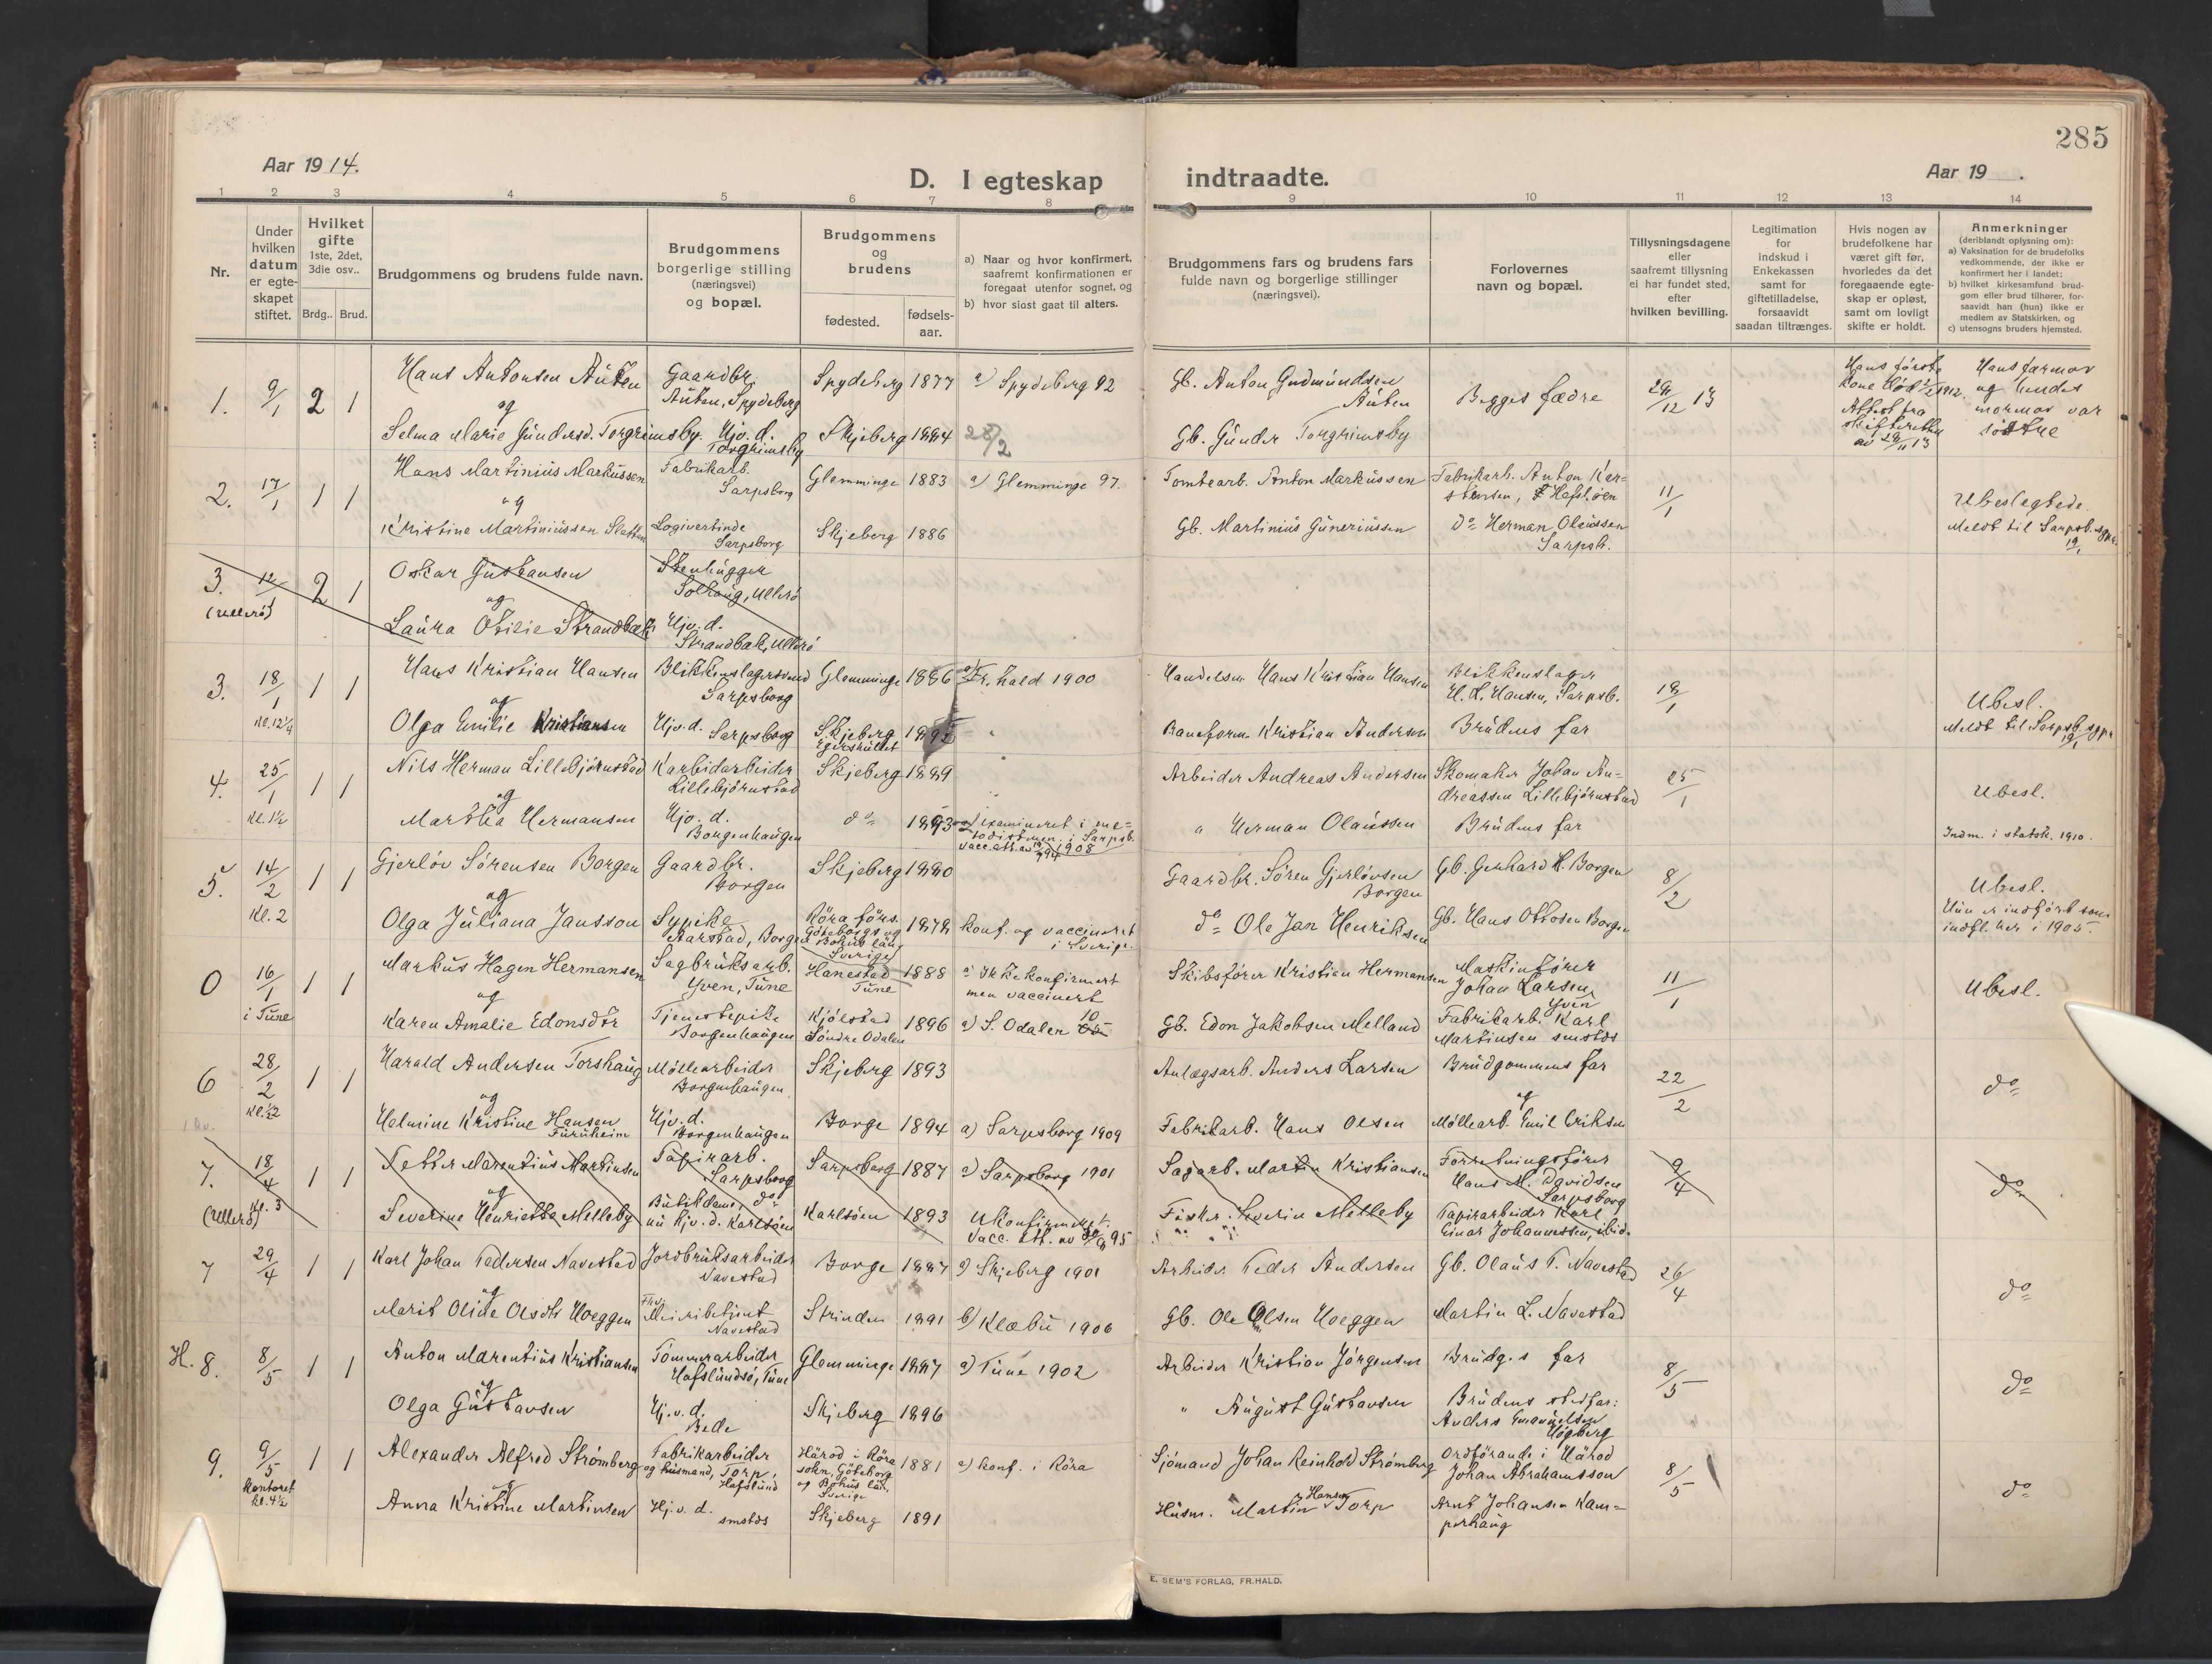 285
Aar 1914.
D. I egteskap indtraadte.
Aar 19 .
1 2 3 4 5 6 7 8 9 10 11 12 13 14
Nr.
Under
hvilken
datum
er egte-
skapet
stiftet.
Hvilket
gifte
1ste, 2det,
3die osv..
Brdg.. Brud.
Brudgommens og brudens fulde navn.
Brudgommens
borgerlige stilling
(næringsvei)
og bopæl.
Brudgommens
og
brudens
fødested.
fødsels-
aar.
a) Naar og hvor konfirmert,
saafremt konfirmationen er
foregaat utenfor sognet, og
b) hvor sisst gaat til alters.
Brudgommens fars og brudens fars
fulde navn og borgerlige stillinger
(næringsvei).
Forlovernes
navn og bopæl.
Tillysningsdagene
eller
saafremt tillysning
ei har fundet sted,
efter
hvilken bevilling.
Legitimation
for
indskud i
Enkekassen
samt for
giftetilladelse,
forsaavidt
saadan tiltrænges.
Hvis nogen av
brudefolkene har
været gift før,
hvorledes da det
foregaaende egte-
skap er opløst,
samt om lovligt
skifte er holdt.
Anmerkninger
(deriblandt oplysning om):
a) Vaksination for de brudefolks
vedkommende, der ikke er
konfirmert her i landet;
b) hvilket kirkesamfund brud-
gom eller brud tilhører, for-
saavidt han (hun) ikke er
medlem av Statskirken, og
c) utensogns bruders hjemsted.
1. 9/1 2 1 Hans Antonsen Auten
og
Selma Marie Gundersd. Torgrimsby
Gaardbr.
Auten, Spydeberg
Hjv. d.
Torgrimsby
Spydeberg 1877 a) Spydeberg 92
Skjeberg 1884 28/2
Gb. Anton Gudmundsen
Auten
Gb. Gunder Torgrimsby
Begges fædre
29/12 13
Hans første
kone død 2/2 1912.
Attest fra
skifteretten
av 29/11 13
Hans farmor
og hendes
mormor var
søstre
2. 17/1 1 1 Hans Martinius Markussen
og
Kristine Martiniussen Sletten
Fabrikarb.
Sarpsborg
Logivertinde
Sarpsborg
Glemminge 1883 a) Glemminge 97.
Skjeberg 1886
Tomtearb. Anton Markussen
Gb. Martinius Guneriussen
Fabrikarb. Anton Kar-
stensen, Hafslöen
do Herman Olaussen
Sarpsb.
11/1
Ubeslegtede.
Meldt til Sarpsb. sgpr.
19/1
3. 12/1 2 1
(Ullerø)
Oskar Gustausen
og
Laura Otilie Strandbæk
Stenhugger
Solhaug, Ullerö
Hjv. d.
Strandbak, Ullerö
3. 18/1 1 1
Kl. 12 1/4
Hans Kristian Hansen
og
Olga Emilie Kristiansen
Blikkenslagersvend
Sarpsborg
Hjv. d. Sarpsborg
Glemminge 1886 a) Fr.hald 1900
Skjeberg
1892
Handelsm Hans Kristian Hansen
Baneform. Kristian Andersen
Blikkenslager
H. L. Hansen, Sarpsb.
Brudens far
18/1
Ubesl.
Meldt til Sarpsb. sgpr
19/1
4. 25/1 1 1
Kl. 1 1/2
Nils Herman Lillebjørnstad
og
Martha Hermansen
Karbidarbeider
Lillebjørnstad
Hjv. d.
Borgenhaugen
Skjeberg 1889
do 1893 a) examineret i me-
todistmen. i Sarpsb.
1908
Arbeider Andreas Andersen
" Herman Olaussen
Skomaker Johan An-
dreassen Lillebjørnstad
Brudens far
25/1
Ubesl.
Indm. i statsk. 1910.
5. 14/2 1 1
Kl. 2
Gjerløv Sørensen Borgen
og
Olga Juliana Jansson
Gaardbr.
Borgen
Sypike
Aarstad, Borgen
Skjeberg 1880
Röra förs.
Göteborgs og
Bohus län,
Sverige
1878 konf. og vaccineret
i Sverige.
Gaardbr. Søren Gjerløvsen
Borgen
do Ole Jan Henriksen
Gb. Gerhard H. Borgen
Gb. Hans Ottosen Borgen
8/2
Ubesl.
Hun er indført som
indfl. her i 1905.
0 16/1 1 1
i Tune
Markus Hagen Hermansen
og
Karen Amalie Edonsdtr
Sagbruksarb.
Yven, Tune
Tjenestepike
Borgenhaugen
Hanestad
Tune
1888 a) Ikke konfirmert
men vaccinert
Kjölstad
Söndre Odalen
1896 a) S. Odalen 10
Skibsfører Kristian Hermansen
Gb. Edon Jakobsen Melland
Maskinfører
Johan Larsen
Yven
Fabrikarb. Karl
Martinsen smstds
11/1
Ubesl.
6 28/2 1 1
Kl. 1/2 2
Harald Andersen Torshaug
og
Halmine Kristine Hansen
Furuheim
Møllearbeider
Borgenhaugen.
Hjv. d.
Borgenhaugen
Skjeberg 1893
Borge 1894 a) Sarpsborg 1909
Anlægsarb. Anders Larsen
Fabrikarb. Hans Olsen
Brudgommens far
og
Møllearb. Emil Eriksen
22/2
do
7. 18/4 1 1
Kl. 3
(Ullerö)
Petter Marentius Martinsen
og
Severine Henriette Melleby
Papirarb.
Sarpsborg
Butikdame, do
nu hjv. d. Karlsöen
Sarpsborg 1887 a) Sarpsborg 1901
Karlsöen 1893 Ukonfirmert.
Vacc. att. av 30/9 95
Sagarb. Martin Kristiansen
Fisker Severin Melleby
Forretningsfører
Hans M. Davidsen
Sarpsborg
Papirarbeider Karl
Einar Johannessen, ibid.
9/4
do
7 29/4 1 1
Karl Johan Pedersen Navestad
og
Marit Oline Olsdtr Hoeggen
Jordbruksarbeider
Navestad
Fhv.
Meieribetjent
Navestad
Borge 1887 a) Skjeberg 1901
Strinden 1891 b) Klæbu 1906
Arbeider Peder Andersen
Gb. Ole Olsen Hoeggen
Gb. Olaus P. Navestad
Martin L. Navestad
26/4
do
H. 8. 8/5 1 1
Anton Marentius Kristiansen
og
Olga Gustavsen
Tømmerarbeider
Hafslundsö, Tune
Hj.v.d.
Bede
Glemminge 1887 a) Tune 1902
Skjeberg 1896
Arbeider Kristian Jørgensen
" August Gustavsen
Brudg.s far
Brudens stedfar:
Anders Emanuelsen
Högberg
8/5
do
9. 9/5 1 1
Kontoret
kl. 4 1/2
Alexander Alfred Strømberg
og
Anna Kristine Martinsen
Fabrikarbeider
og husmand, Torp,
Hafslund
Hj. v. d.
smstds
Härod i Röra
sokn, Göteborg
og Bohus län,
Sverige
1881 a) konf. i Röra
Skjeberg 1891
Sjömand Johan Reinhold Strømberg
Husm. Martin Hansen Torp
Ordförande i Härod
Johan Abrahamsson
Arnt Johansen Kam-
perhaug
8/5
do
E. SEM'S FORLAG, FR.HALD.